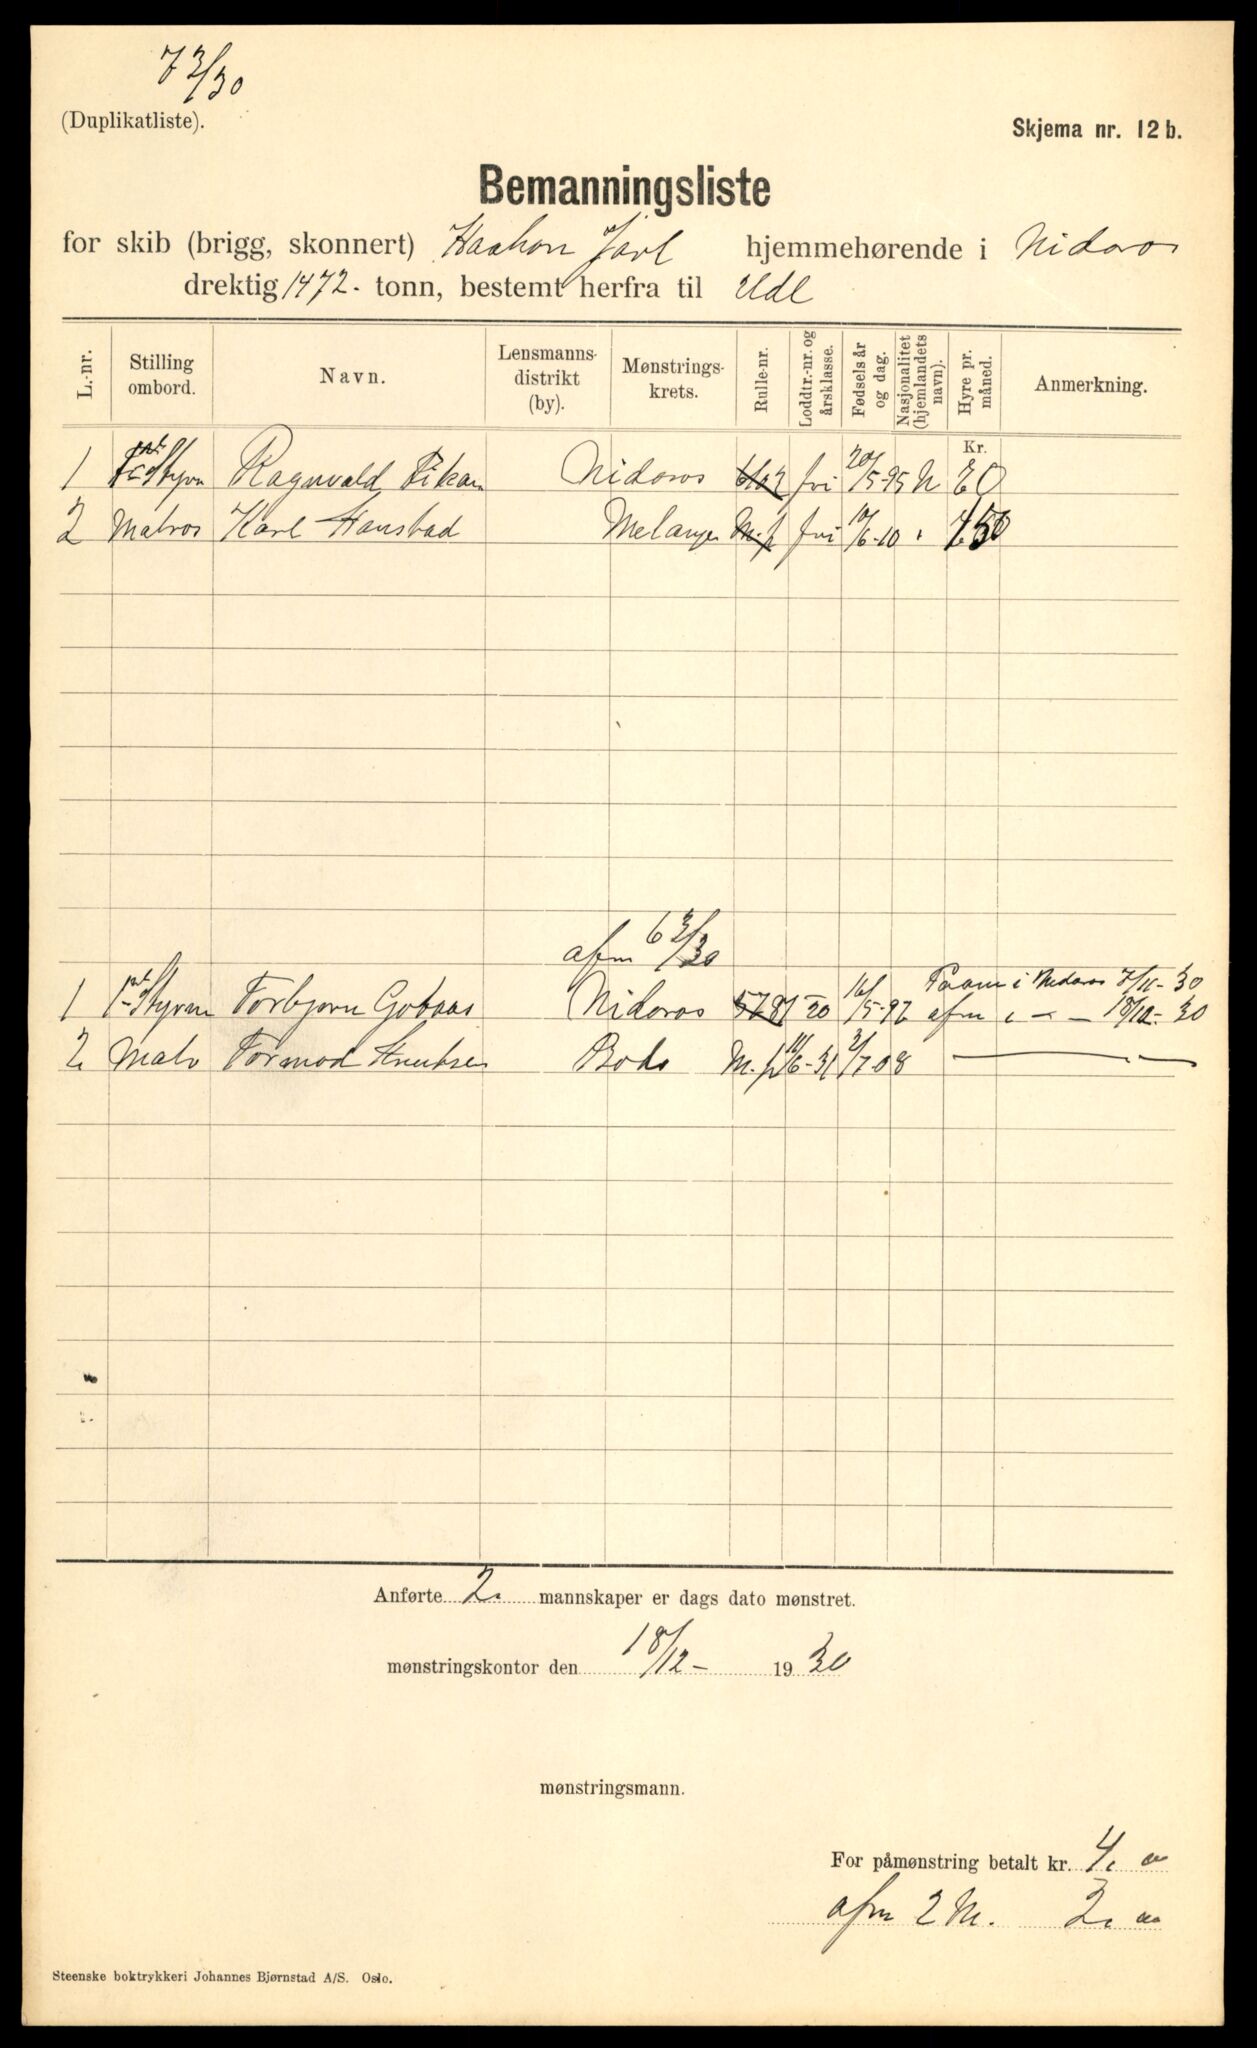 73/30
(Duplikatliste).
Skjema nr. 12 b.
Bemanningsliste
for skib (brigg, skonnert) Haakon Jarl hjemmehørende i Nidaros
drektig 1472. tonn, bestemt herfra til Udl
L.-nr. Stilling ombord. Navn. Lensmannsdistrikt (by). Mønstringskrets. Rulle-nr. Loddtr.-nr. og årsklasse. Fødsels år og dag. Nasjonalitet (hjemlandets navn). Hyre pr. måned. Anmerkning.
Kr.
1 Styrm Ragnvald Nidaros fri 20/5-95 N
2 Matros Karl Hansbad M.p fri 10/6-10 "
afm 63/30
1 1ste Styrm Torbjørn Gobaas Nidaros 578 91/20 16/5-97 Paam i Nidaros 7/11-30
afm i - - 18/12-30
2 Matr Tormod Knutsen Bodø M.p 11/6-31 3/7-08
Anførte 2. mannskaper er dags dato mønstret.
mønstringskontor den 18/12- 1930
mønstringsmann.
For påmønstring betalt kr. 4. "
afm 2 M. 2. "
Steenske boktrykkeri Johannes Bjørnstad A/S. Oslo.